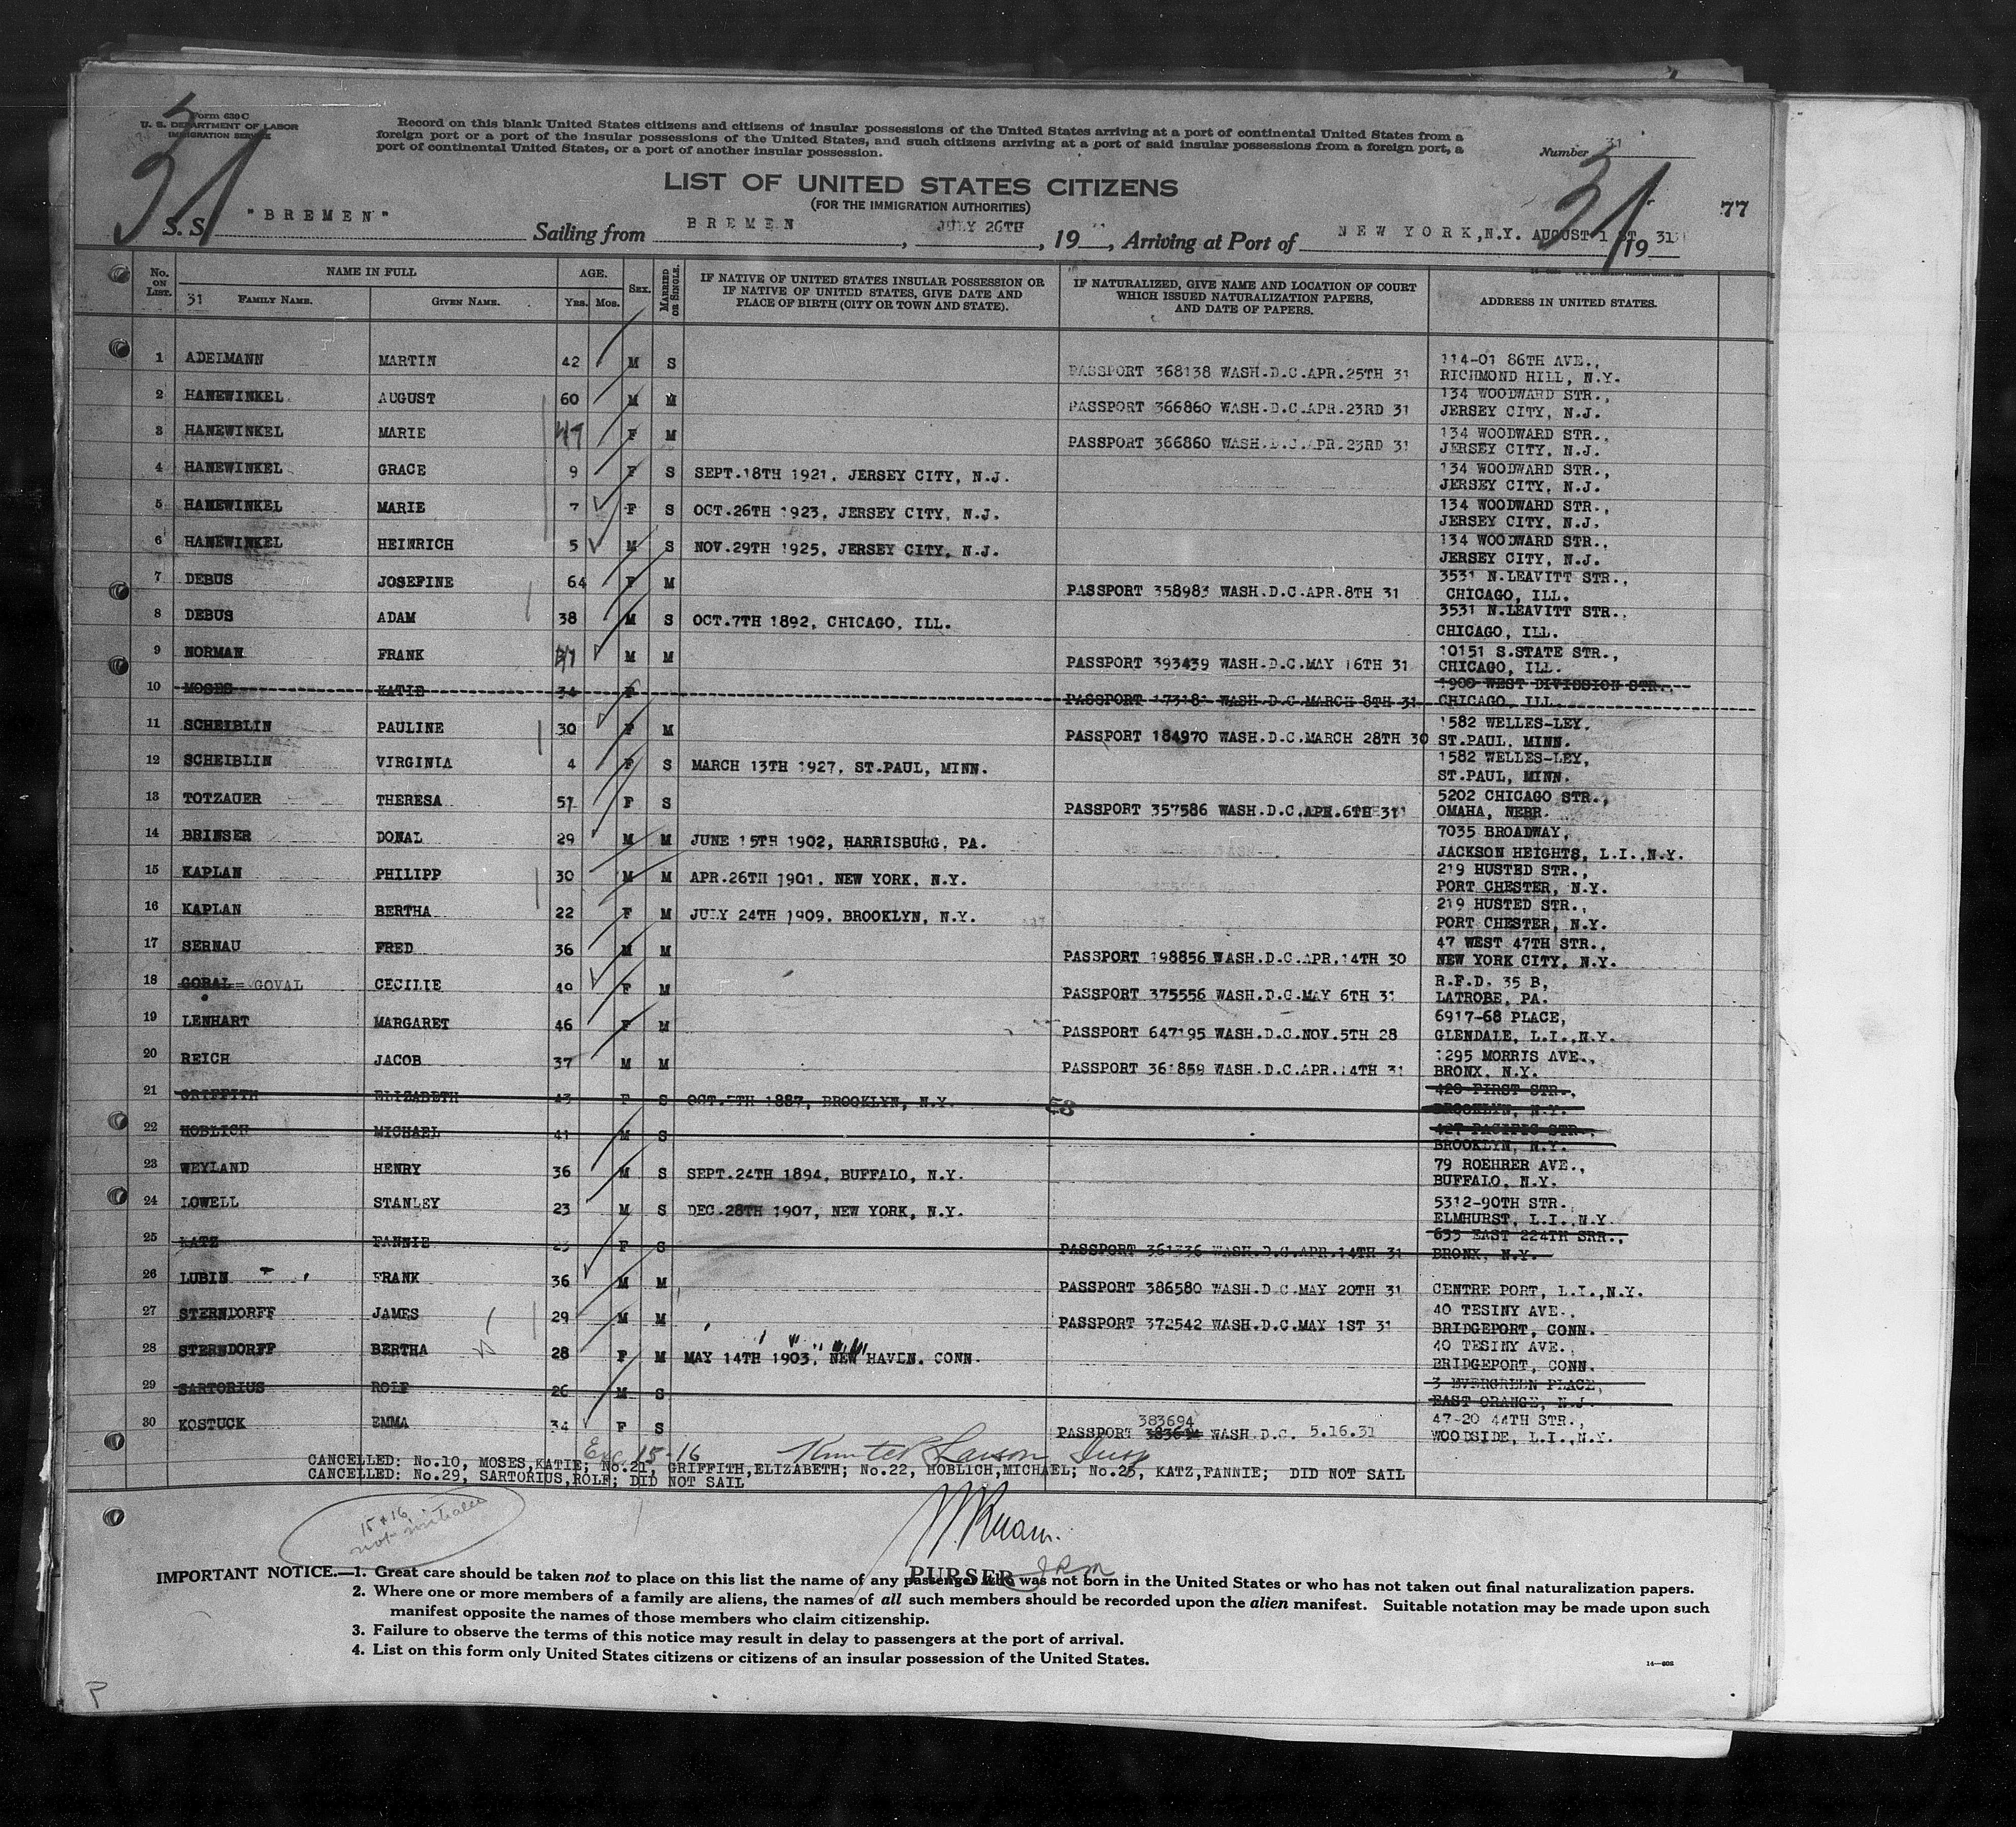 Form 630 C
U. S. DEPARTMENT OF LABOR
IMMIGRATION SERVICE
Record on this blank United States citizens and citizens of insular possessions of the United States arriving at a port of continental United States from a
foreign port or a port of the insular possessions of the United States, and such citizens arriving at a port of said insular possessions from a foreign port, a
port of continental United States, or a port of another insular possession.
Number 31
31 31
LIST OF UNITED STATES CITIZENS
(FOR THE IMMIGRATION AUTHORITIES)
77
S. S. "BREMEN" Sailing from BREMEN, JULY 26TH, 19, Arriving at Port of NEW YORK, N.Y. AUGUST 1 ST 1931
No. ON LIST. NAME IN FULL AGE. SEX. MARRIED OR SINGLE. IF NATIVE OF UNITED STATES INSULAR POSSESSION OR IF NATIVE OF UNITED STATES, GIVE DATE AND PLACE OF BIRTH (CITY OR TOWN AND STATE). IF NATURALIZED, GIVE NAME AND LOCATION OF COURT WHICH ISSUED NATURALIZATION PAPERS, AND DATE OF PAPERS. ADDRESS IN UNITED STATES.
31 FAMILY NAME. GIVEN NAME. Yrs. Mos.
1 ADELMANN MARTIN 42 M S PASSPORT 368138 WASH.D.C.APR.25TH 31 114-01 86TH AVE., RICHMOND HILL, N.Y.
2 HANEWINKEL AUGUST 60 M M PASSPORT 366860 WASH.D.C.APR.23RD 31 134 WOODWARD STR., JERSEY CITY, N.J.
3 HANEWINKEL MARIE 47 F M PASSPORT 366860 WASH.D.C.APR.23RD 31 134 WOODWARD STR., JERSEY CITY, N.J.
4 HANEWINKEL GRACE 9 F S SEPT.18TH 1921, JERSEY CITY, N.J. 134 WOODWARD STR., JERSEY CITY, N.J.
5 HANEWINKEL MARIE 7 F S OCT.26TH 1923, JERSEY CITY, N.J. 134 WOODWARD STR., JERSEY CITY, N.J.
6 HANEWINKEL HEINRICH 5 M S NOV.29TH 1925, JERSEY CITY, N.J. 134 WOODWARD STR., JERSEY CITY, N.J.
7 DEBUS JOSEFINE 64 F M PASSPORT 358983 WASH.D.C.APR.8TH 31 3531 N.LEAVITT STR., CHICAGO, ILL.
8 DEBUS ADAM 38 M S OCT.7TH 1892, CHICAGO, ILL. 3531 N.LEAVITT STR., CHICAGO, ILL.
9 NORMAN FRANK M M PASSPORT 393439 WASH.D.C.MAY 16TH 31 10151 S.STATE STR., CHICAGO, ILL.
10 MOSES KATIE 34 F PASSPORT 173181 WASH.D.C.MARCH 8TH 31 1900 WEST DIVISSION STR., CHICAGO, ILL.
11 SCHEIBLIN PAULINE 30 F M PASSPORT 184970 WASH.D.C.MARCH 28TH 30 1582 WELLES-LEY, ST.PAUL, MINN.
12 SCHEIBLIN VIRGINIA 4 F S MARCH 13TH 1927, ST.PAUL, MINN. 1582 WELLES-LEY, ST.PAUL, MINN.
13 TOTZAUER THERESA 51 F S PASSPORT 357586 WASH.D.C.APR.6TH 31 5202 CHICAGO STR., OMAHA, NEBR.
14 BRINSER DONAL 29 M M JUNE 15TH 1902, HARRISBURG, PA. 7035 BROADWAY, JACKSON HEIGHTS, L.I.,N.Y.
15 KAPLAN PHILIPP 30 M M APR.26TH 1901, NEW YORK, N.Y. 219 HUSTED STR., PORT CHESTER, N.Y.
16 KAPLAN BERTHA 22 F M JULY 24TH 1909, BROOKLYN, N.Y. 219 HUSTED STR., PORT CHESTER, N.Y.
17 SERNAU FRED 36 M M PASSPORT 198856 WASH.D.C.APR.14TH 30 47 WEST 47TH STR., NEW YORK CITY, N.Y.
18 GORAL = GOVAL CECILIE 49 F M PASSPORT 375556 WASH.D.C.MAY 6TH 31 R.F.D. 35 B, LATROBE, PA.
19 LENHART MARGARET 46 F M PASSPORT 647195 WASH.D.C.NOV.5TH 28 6917-68 PLACE, GLENDALE, L.I.,N.Y.
20 REICH JACOB 37 M M PASSPORT 361859 WASH.D.C.APR.14TH 31 1295 MORRIS AVE., BRONX, N.Y.
21 GRIFFITH ELIZABETH 43 F S OCT.5TH 1887, BROOKLYN, N.Y. 58 420 FIRST STR., BROOKLYN, N.Y.
22 HOBLICH MICHAEL 41 M S 427 PACIFIC STR., BROOKLYN, N.Y.
23 WEYLAND HENRY 36 M S SEPT.24TH 1894, BUFFALO, N.Y. 79 ROEHRER AVE., BUFFALO, N.Y.
24 LOWELL STANLEY 23 M S DEC.28TH 1907, NEW YORK, N.Y. 5312-90TH STR. ELMHURST, L.I.,N.Y.
25 KATZ FANNIE 23 F S PASSPORT 361336 WASH.D.C.APR.14TH 31 655 EAST 224TH SRR., BRONX, N.Y.
26 LUBIN FRANK 36 M M PASSPORT 386580 WASH.D.C.MAY 20TH 31 CENTRE PORT, L.I.,N.Y.
27 STERNDORFF JAMES 29 M M PASSPORT 372542 WASH.D.C.MAY 1ST 31 40 TESINY AVE., BRIDGEPORT, CONN.
28 STERNDORFF BERTHA 28 F M MAY 14TH 1903, NEW HAVEN, CONN. 40 TESINY AVE., BRIDGEPORT, CONN.
29 SARTORIUS ROLF 26 M S 3 EVERGREEN PLACE, EAST ORANGE, N.J.
30 KOSTUCK EMMA 34 F S PASSPORT 383694 WASH.D.C. 5.16.31 47-20 44TH STR., WOODSIDE, L.I.,N.Y.
Exc. 15-16 Larson Insp
CANCELLED: No.10, MOSES,KATIE; No.21, GRIFFITH,ELIZABETH; No.22, HOBLICH,MICHAEL; No.25, KATZ,FANNIE; DID NOT SAIL
CANCELLED: No.29, SARTORIUS,ROLF; DID NOT SAIL
15 + 16
not initialed
PURSER
IMPORTANT NOTICE.—1. Great care should be taken not to place on this list the name of any passenger who was not born in the United States or who has not taken out final naturalization papers.
2. Where one or more members of a family are aliens, the names of all such members should be recorded upon the alien manifest. Suitable notation may be made upon such
manifest opposite the names of those members who claim citizenship.
3. Failure to observe the terms of this notice may result in delay to passengers at the port of arrival.
4. List on this form only United States citizens or citizens of an insular possession of the United States.
P